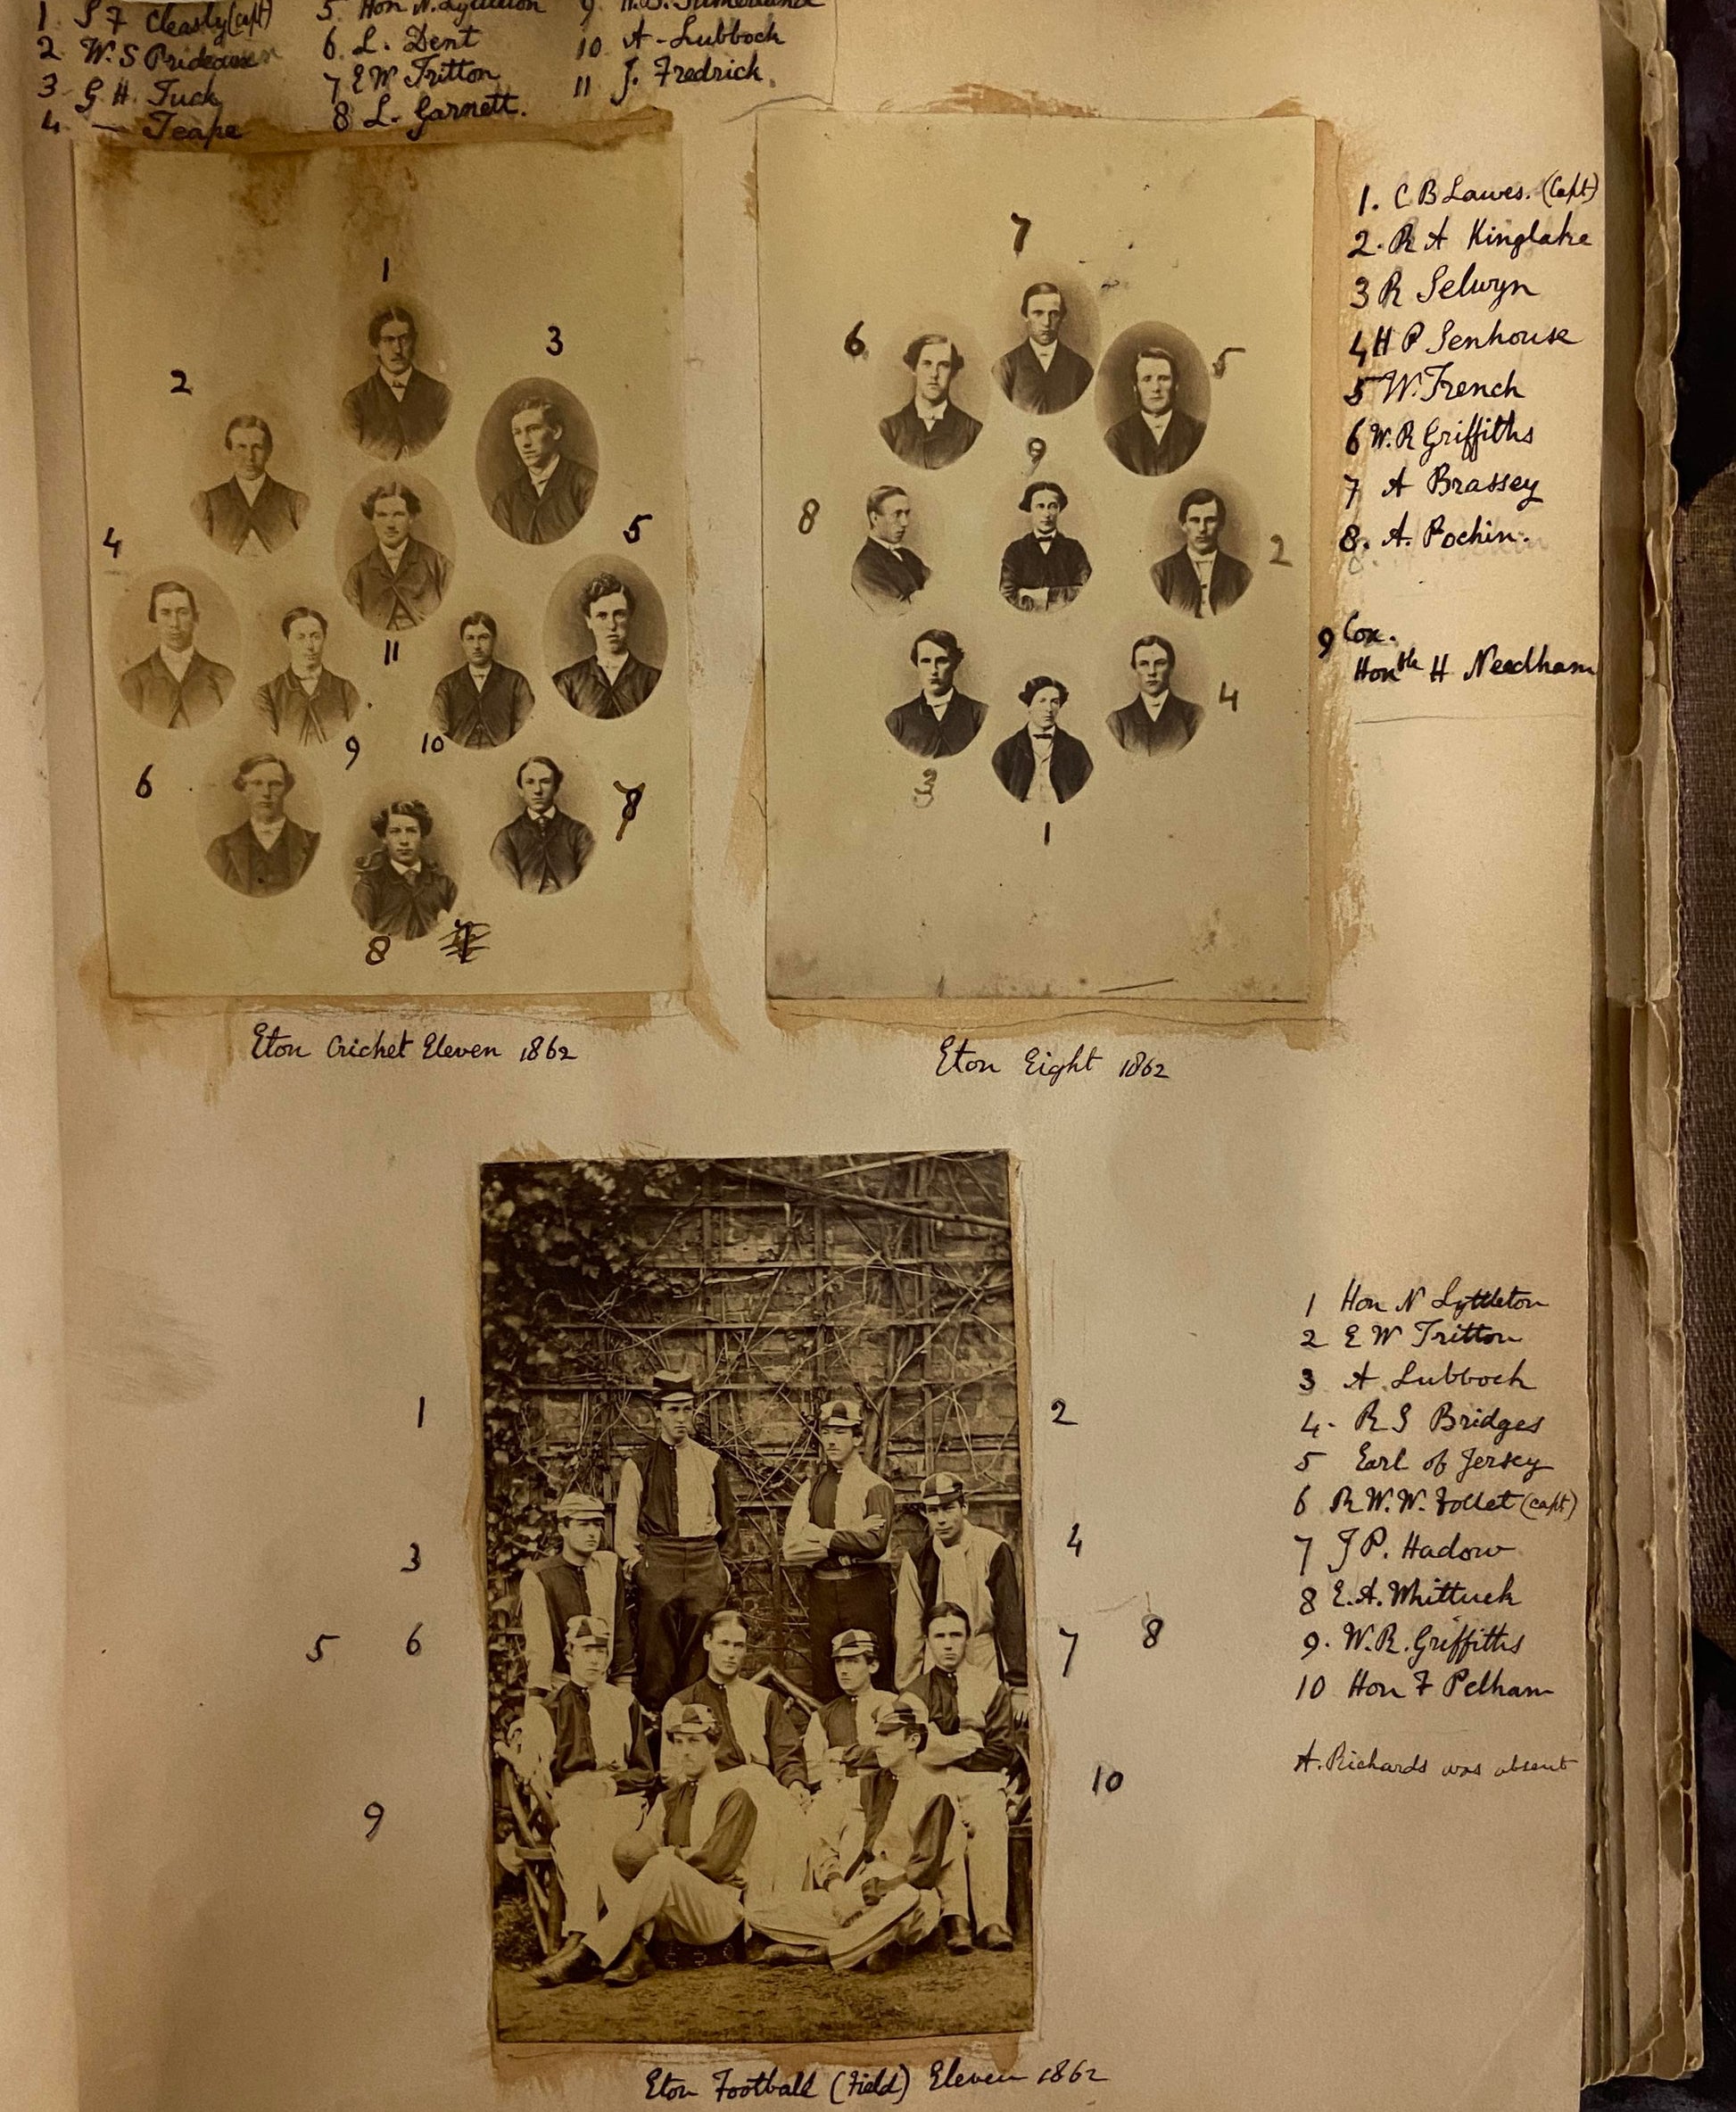 1 S F Cleasby (Capt)
2 W. S Prideaux
3 G H. Tuck
4 — Teape
5. Hon N. Lyttleton
6 L. Dent
7 E W Tritton
8 L. Garnett.
9
10 A - Lubbock
11 J. Fredrick.
1
2
3
4
5
11
9
10
6
7
8
7
6
5
9
8
2
3
4
1
1. C B Lawes. (Capt)
2. R A Kinglake
3 R Selwyn
4 H P Senhouse
5 W. French
6 W. R Griffiths
7 A Brassey
8. A. Pochin.
9 Cox.
Honble H Needham
Eton Cricket Eleven 1862
Eton Eight 1862
1
2
3
4
5
6
7
8
9
10
1 Hon N Lyttleton
2 E W Tritton
3 A. Lubbock
4. R S Bridges
5 Earl of Jersey
6 R W. W. Follet (capt)
7 J P. Hadow
8 E. A. Whittuck
9. W. R. Griffiths
10 Hon F Pelham
A. Richards was absent
Eton Football (Field) Eleven 1862